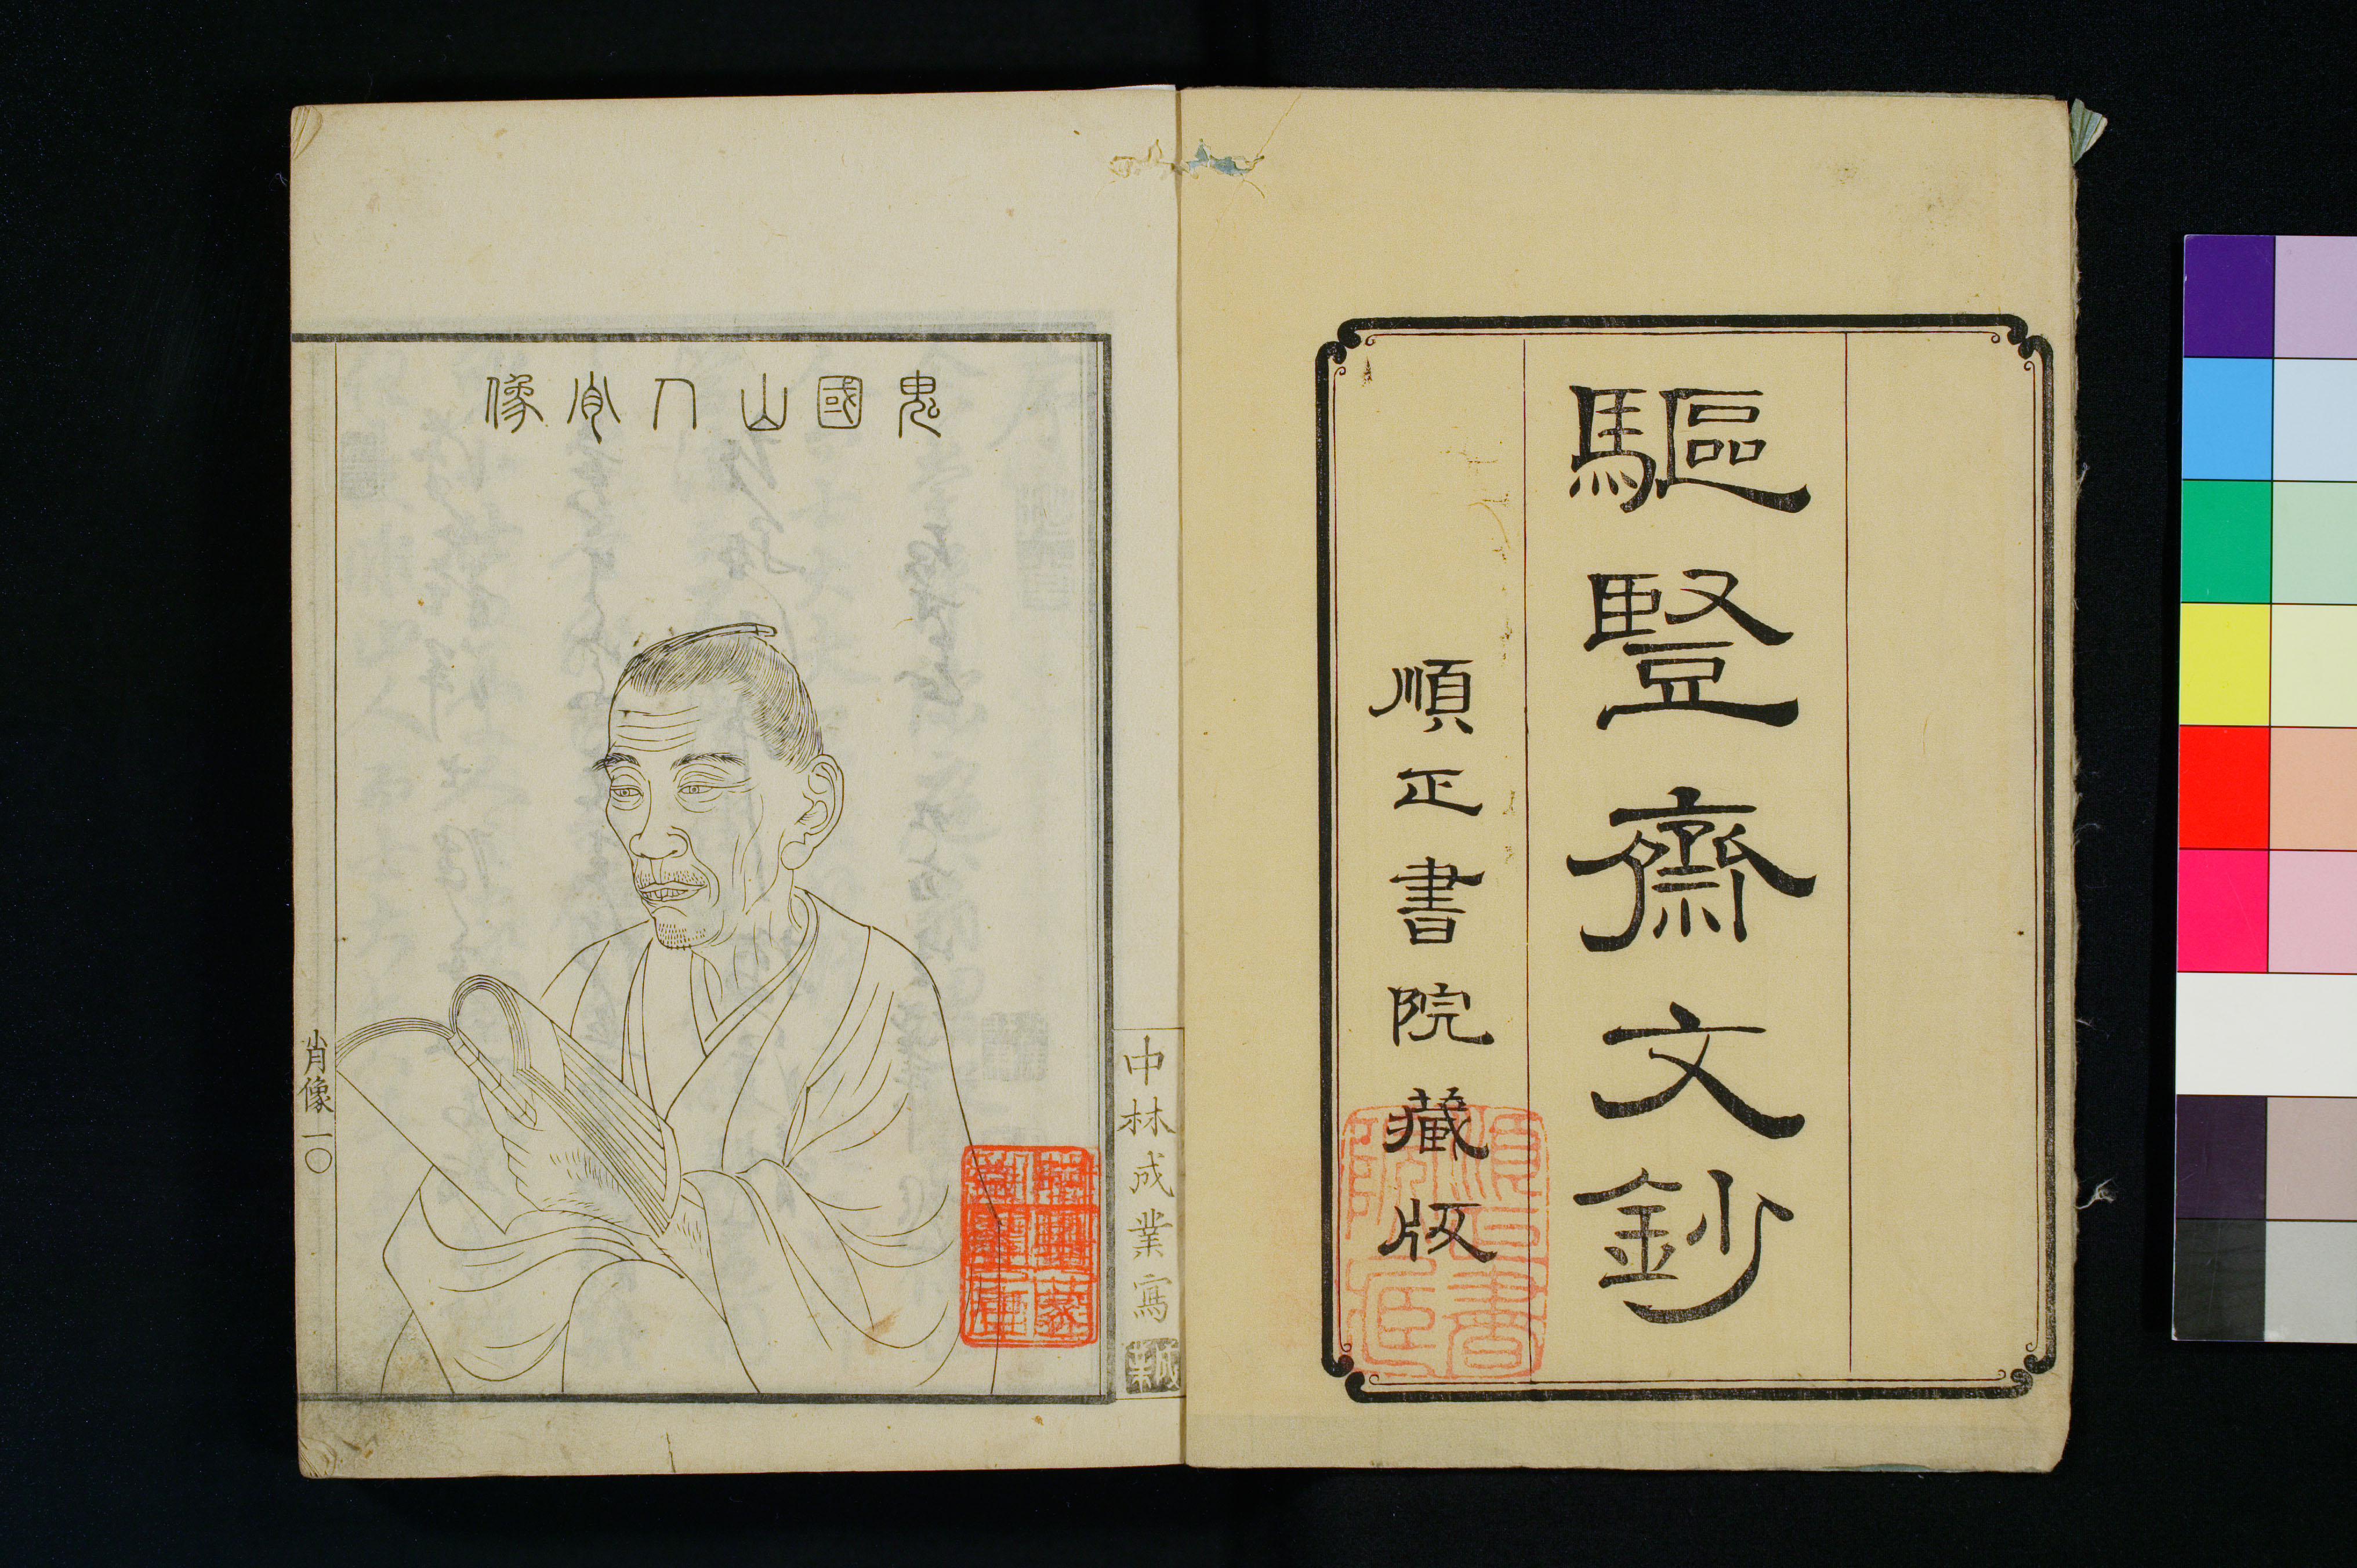 驅豎齋文鈔
順正書院藏版
順正書院
中林成業寫
鬼國山人肖像
肖像一〇